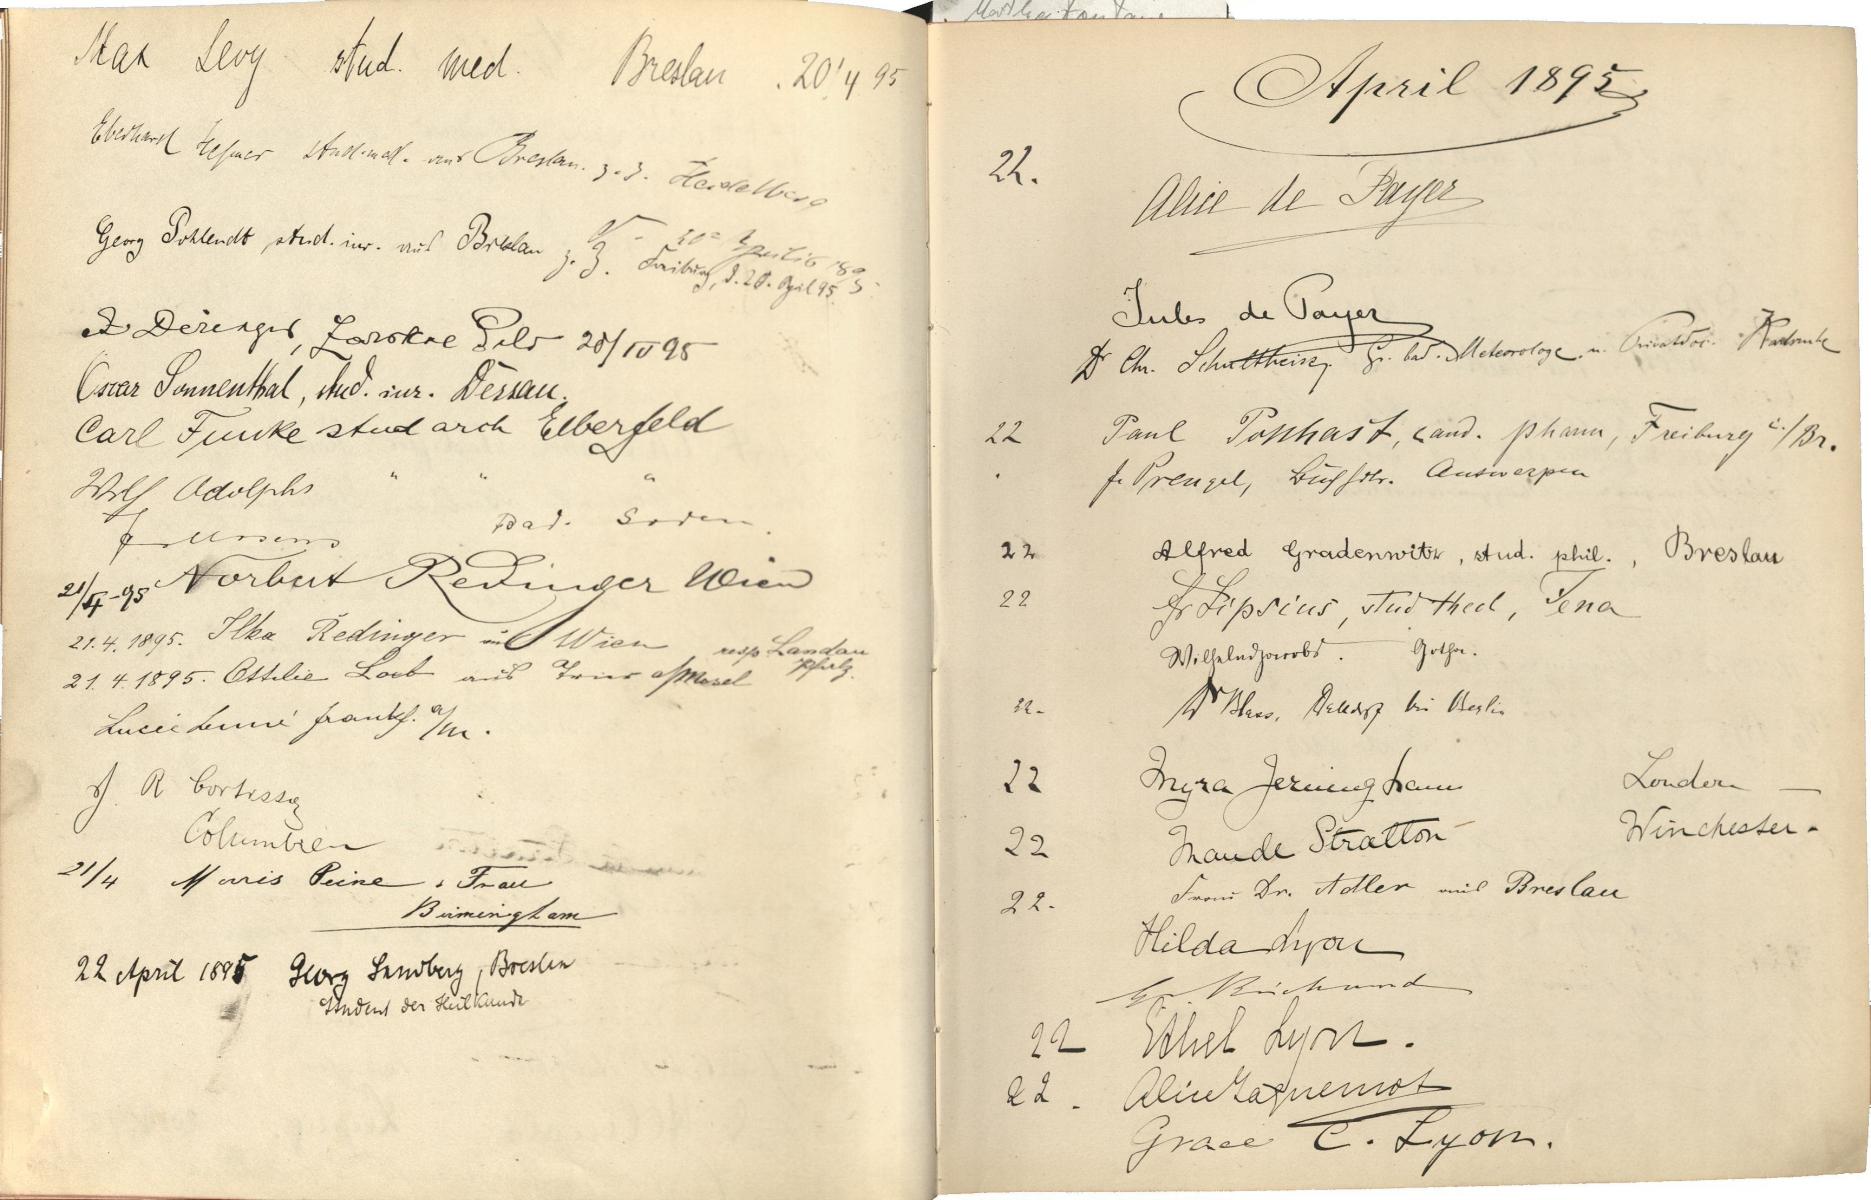 Max Levy stud. med. Breslau . 20/4 95
Eberhard stud. med. aus Breslau. z. Z. Heidelberg
Georg Pohlendt, stud. iur. aus Breslau z. Z. Freiburg, d. 20. April 95
20/IV 95
Oscar Sonnenthal, stud. iur. Dessau.
Carl Funke stud arch Elberfeld
Wilh Adolphs " " "
Bad. Soden.
21/IV-95 Norbert Redinger Wien
21.4.1895. Ilka Redinger aus Wien resp Landau Pfalz.
21.4.1895. Ottilie Loeb aus Trier a/Mosel
Lucie frankf. a/m.
J. R Cortissoz
Columbien
21/4 Morris Peine & Frau
Birmingham
22 April 1895 Georg Sandberg, Breslau
Student der Heilkunde
April 1895
22. Alice de Payer
Jules de Payer
Dr Chr. Schultheiss, Gr. bad. Meteorologe u. Privatdoc. Karlsruhe
22 Paul Potthast, cand. pharm, Freiburg i/Br.
fr Prengel, Buchhdlr. Antwerpen
22 Alfred Gradenwitz, stud. phil., Breslau
22 Fr Lipsius, stud theol, Jena
Wilhelm Jacobs. Gotha.
22. Dr Blass, Dalldorf bei Berlin
22 Myra Jerningham London
22 Maude Stratton Winchester.
22. Frau Dr. Adler aus Breslau
Hilda Lyon
22 Ethel Lyon.
22. Alice Jaquemot
Grace C. Lyon.